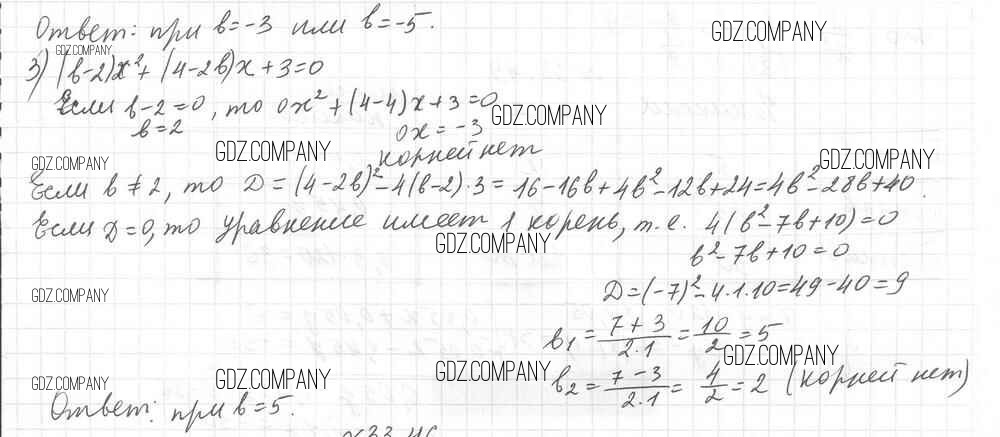 Ответ: при b=-3 или b=-5.
GDZ.COMPANY
GDZ.COMPANY
3) (b-2)x²+(4-2b)x+3=0
Если b-2=0, то 0x²+(4-4)x+3=0
GDZ.COMPANY
b=2
0x=-3
GDZ.COMPANY
корней нет
GDZ.COMPANY
GDZ.COMPANY
Если b≠2, то D=(4-2b)²-4(b-2)·3=16-16b+4b²-12b+24=4b²-28b+40.
Если D=0, то уравнение имеет 1 корень, т.е. 4(b²-7b+10)=0
GDZ.COMPANY
b²-7b+10=0
GDZ.COMPANY
D=(-7)²-4·1·10=49-40=9
b₁=(7+3)/(2·1)=10/2=5
GDZ.COMPANY
GDZ.COMPANY
GDZ.COMPANY
GDZ.COMPANY
b₂=(7-3)/(2·1)=4/2=2 (корней нет)
Ответ: при b=5.